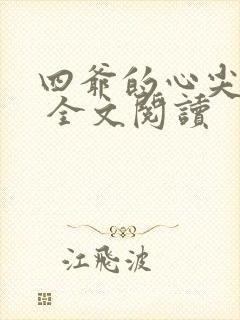 四爺的心尖
全文閱讀
江飛波